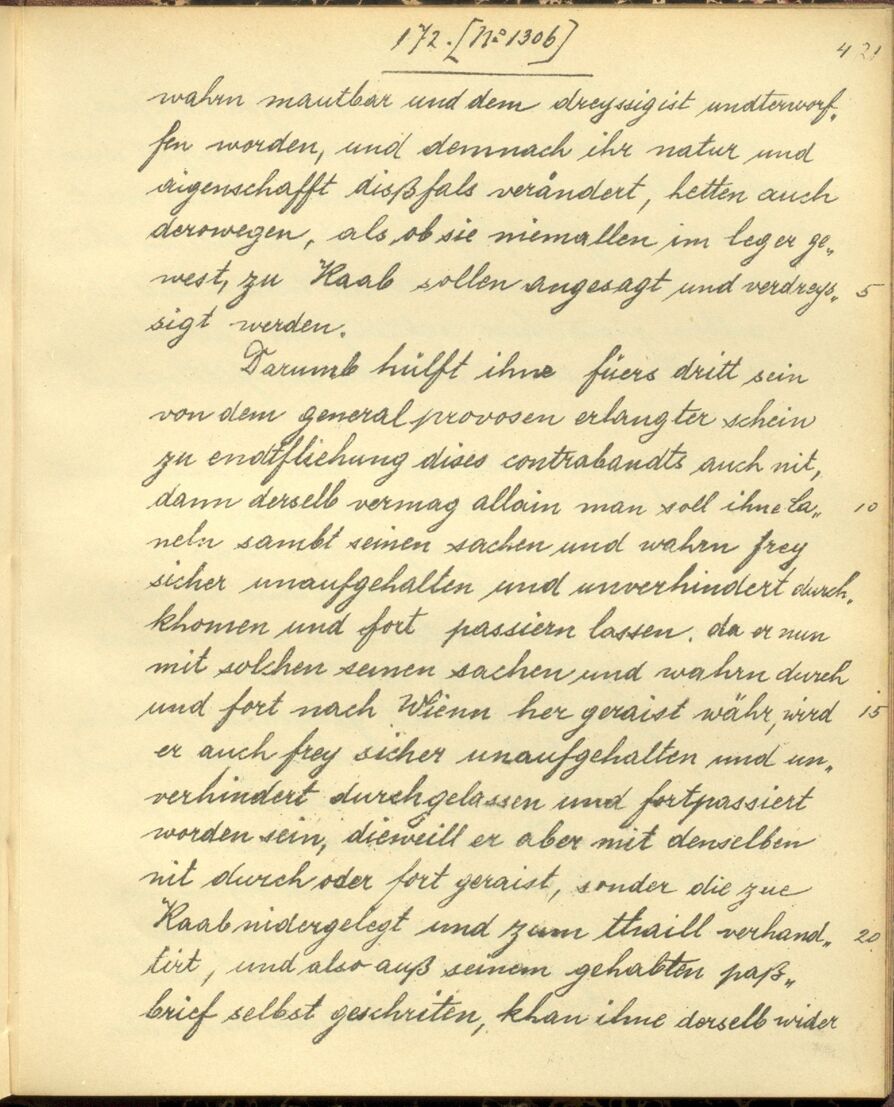 172. [No 1306]
421
wahrn mautbar und dem dreyssigist undterworf„
fen worden, und demnach ihr natur und
aigenschafft dißfals verändert, hetten auch
derowegen, als ob sie niemallen im leger ge„
west, zu Raab sollen angesagt und verdreys„ 5
sigt werden.
Darumb hülft ihne füers dritt sein
von dem general provosen erlangter schein
zu endtfliehung dises contrabandts auch nit,
dann derselb vermag allain man soll ihne La„ 10
neln sambt seinen sachen und wahrn frey
sicher unaufgehalten und unverhindert durch„
khomen und fort passiern lassen. da er nun
mit solchen seinen sachen und wahrn durch
und fort nach Wienn her geraist währ, wird 15
er auch frey sicher unaufgehalten und un„
verhindert durchgelassen und fortpassiert
worden sein, dieweill er aber mit denselben
nit durch oder fort geraist, sonder die zue
Raab nidergelegt und zum thaill verhand„ 20
tirt, und also auß seinem gehabten paß„
brief selbst geschriten, khan ihne derselb wider